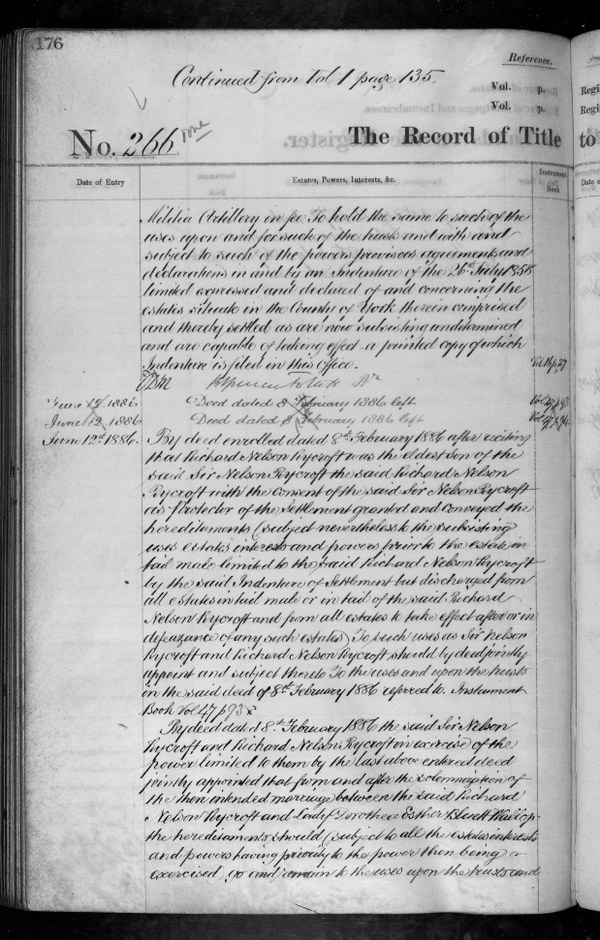 176
Reference.
Continued from Vol 1 page 135.
Vol. p.
Vol. p.
No. 266
The Record of Title
to
Regi
Regi
Date of Entry
Estates, Powers, Interests, &c.
Instrument Book
Date o
Militia Artillery in fee To hold the same to such of the
uses upon and for such of the trusts and with and
subject to such of the powers provisoes agreements and
declarations in and by an Indenture of the 26th July 1856
limited expressed and declared of and concerning the
estates situate in the County of York therein comprised
and thereby settled as are now subsisting undetermined
and are capable of taking effect a printed copy of which
Indenture is filed in this Office.
June 12 1886 Deed dated 8 February 1886 left Vol 47 p 93
June 12 1886 Deed dated 8 February 1886 left Vol 47 p 94
June 12th 1886. By deed enrolled dated 8th February 1886 after reciting
that Richard Nelson Rycroft was the eldest son of the
said Sir Nelson Rycroft the said Richard Nelson
Rycroft with the consent of the said Sir Nelson Rycroft
as Protector of the Settlement granted and conveyed the
hereditaments (subject nevertheless to the subsisting
uses estates interests and powers prior to the estate in
tail male limited to the said Richard Nelson Rycroft
by the said Indenture of Settlement but discharged from
all estates in tail male or in tail of the said Richard
Nelson Rycroft and from all estates to take effect after or in
defeazance of any such estates) To such uses as Sir Nelson
Rycroft and Richard Nelson Rycroft should by deed jointly
appoint and subject thereto To the uses and upon the trusts
in the said deed of 8th February 1886 referred to. Instrument
Book Vol 47 p 93
By deed dated 8th February 1886 the said Sir Nelson
Rycroft and Richard Nelson Rycroft in exercise of the
power limited to them by the last above entered deed
jointly appointed that from and after the solemnization of
the then intended marriage between the said Richard
Nelson Rycroft and Lady Dorothea Esther Wallop
the hereditaments should (subject to all the estates interests
and powers having priority to the power then being
exercised go and remain to the uses upon the trusts and